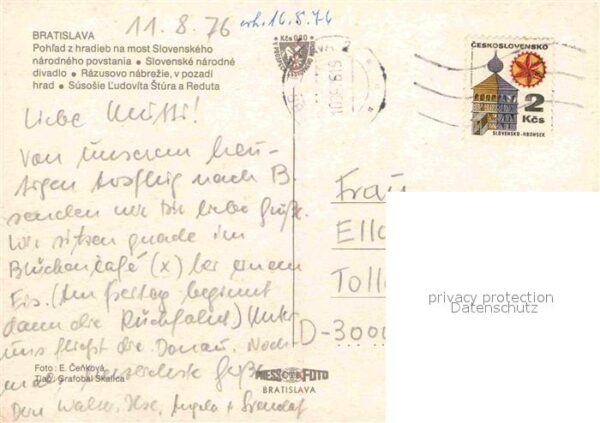 11.8.76
erh. 16.8.76
BRATISLAVA
Pohľad z hradieb na most Slovenského
národného povstania • Slovenské národné
divadlo • Rázusovo nábrežie, v pozadí
hrad • Súsošie Ľudovíta Štúra a Reduta
Kčs 0,80
ČESKOSLOVENSKO
2
Kčs
SLOVENSKO-HRONSEK
Liebe Mutti!
Von unserem heu-
tigen Ausflug nach B.
senden wir Dir liebe Grüße.
Wir sitzen gerade im
Brückencafé (x) bei einem
Eis. (Am Freitag beginnt
dann die Rückfahrt) Unter
uns fließt die Donau. Noch
mal herzlichste Grüße
Dein Walter, Ilse, Angela +
Frau
Ella
Toll
D-3000
privacy protection
Datenschutz
Foto: E. Čeňková
Tlač: Grafobal Skalica
PRESSFOTO
BRATISLAVA